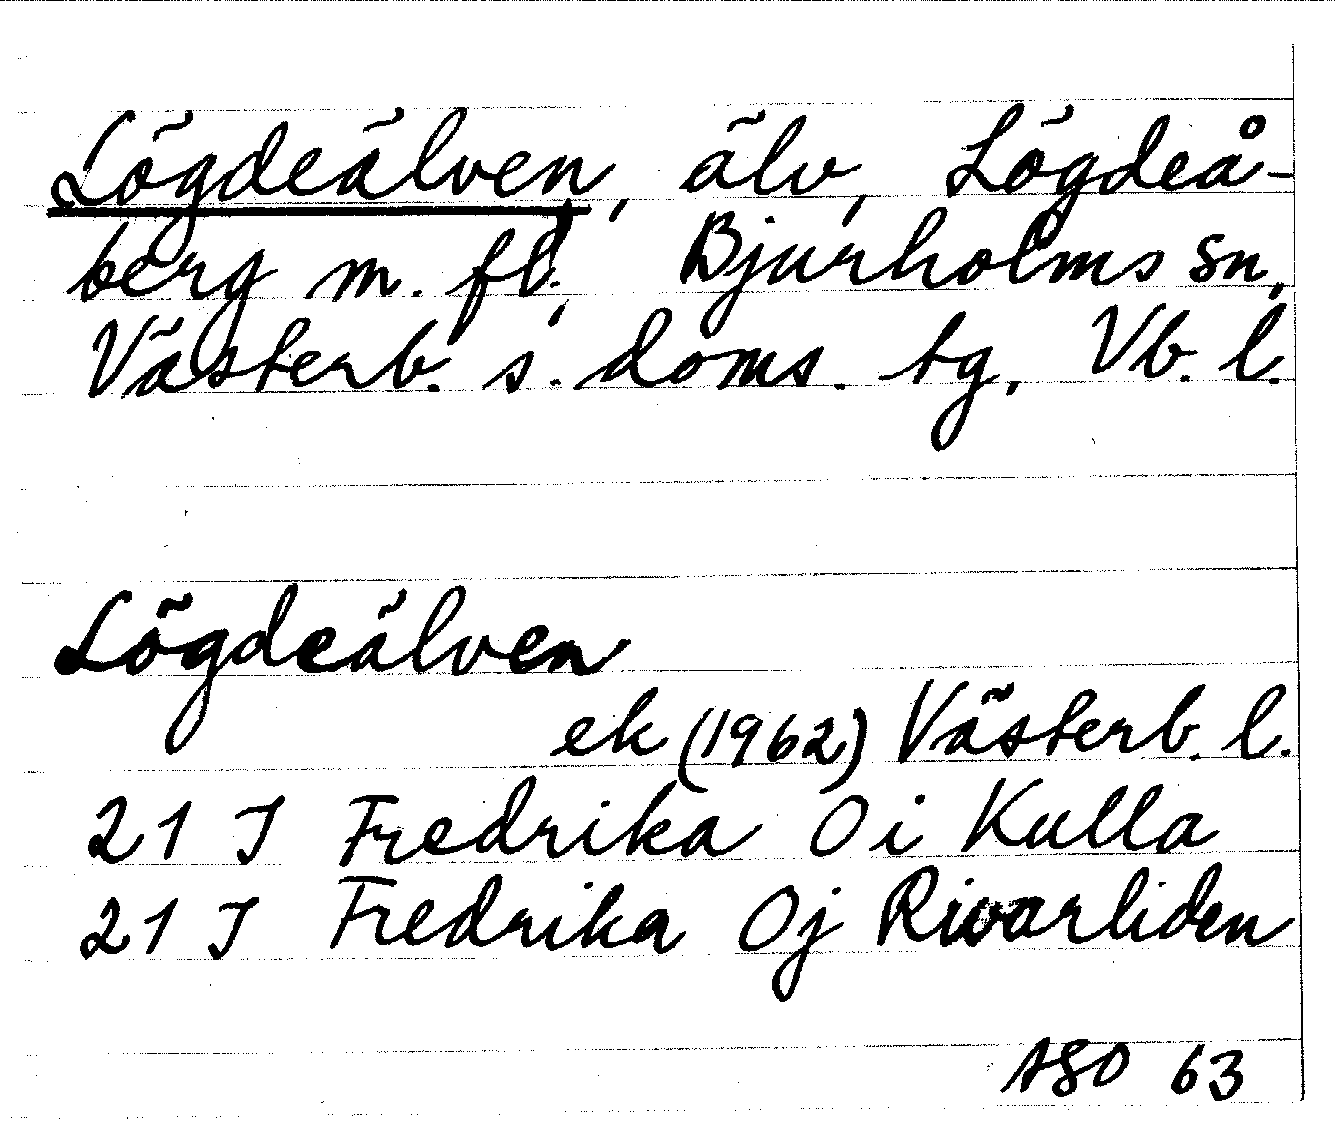 Lögdeälven, älv, Lögdeå-
berg m. fl., Bjurholms sn,
Västerb. s. doms. tg, Vb. l.
Lögdeälven
ek (1962) Västerb. l.
21 J Fredrika Oi Kulla
21 J Fredrika Oj Rivarliden
ASO 63